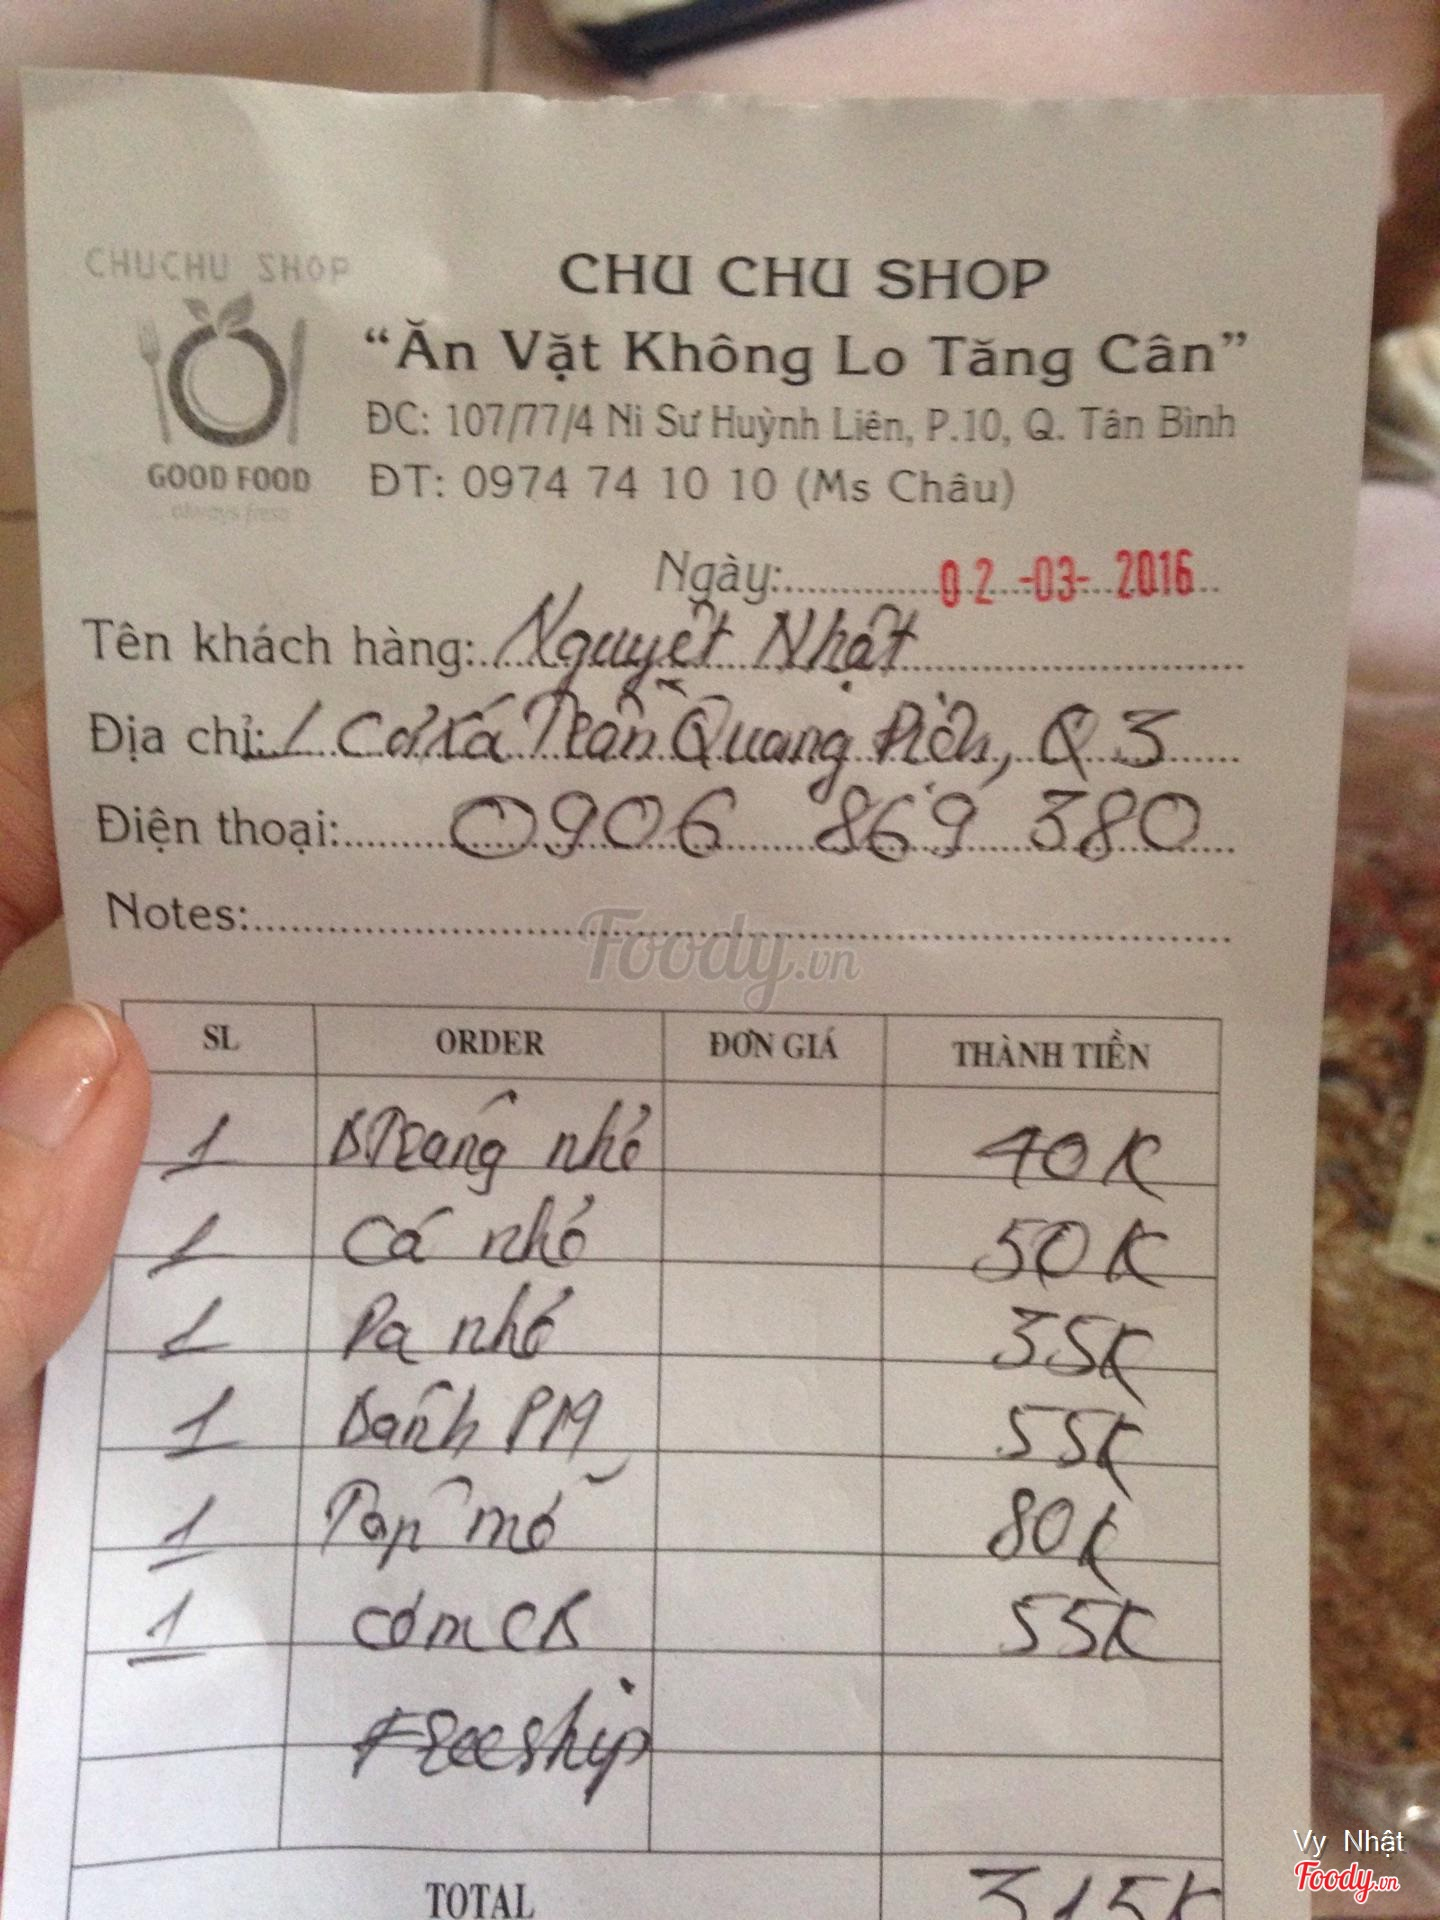 CHUCHU SHOP
GOOD FOOD
always fresh
CHU CHU SHOP
“Ăn Vặt Không Lo Tăng Cân”
ĐC: 107/77/4 Ni Sư Huỳnh Liên, P.10, Q. Tân Bình
ĐT: 0974 74 10 10 (Ms Châu)
Ngày: 02-03-2016
Tên khách hàng: Nguyệt Nhật
Địa chỉ: / Cư Xá Trần Quang Diệu, Q 3
Điện thoại: 0906 869 380
Notes:
Foody.vn
SL ORDER ĐƠN GIÁ THÀNH TIỀN
1 B.Tráng nhỏ 40K
1 Cá nhỏ 50K
1 nhỏ 35K
1 Bánh PM 55K
1 mỡ 80K
1 Cơm CB 55K
Freeship
TOTAL 315K
Vy Nhật
Foody.vn